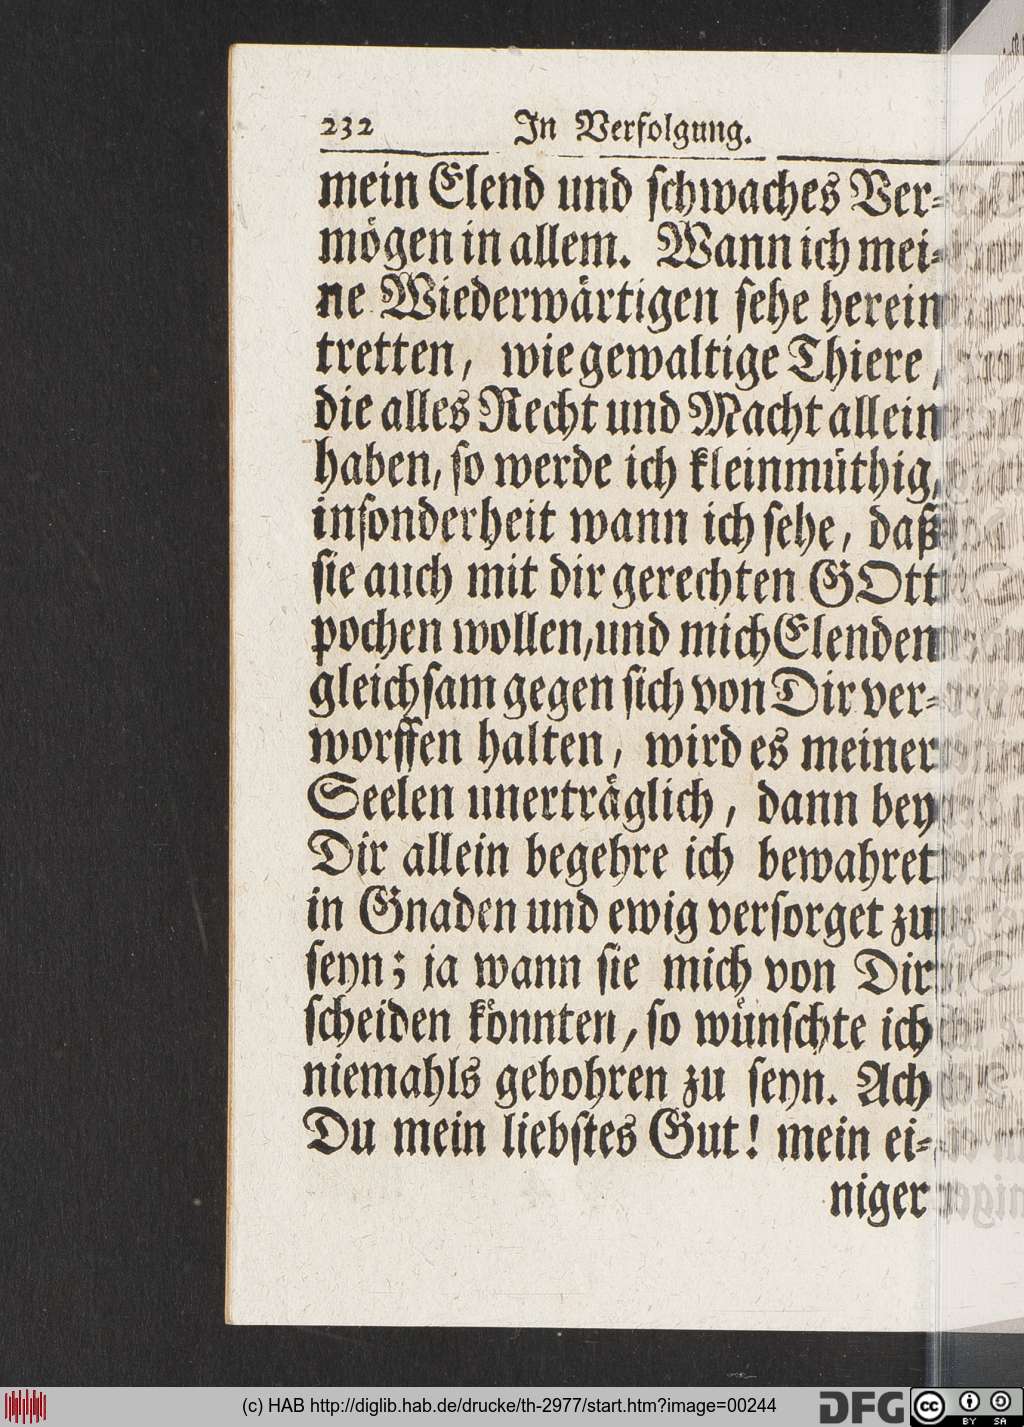 232 In Verfolgung.
mein Elend und schwaches Ver-
mögen in allem. Wann ich mei-
ne Wiederwärtigen sehe herein
tretten, wie gewaltige Thiere,
die alles Recht und Macht allein
haben, so werde ich kleinmüthig,
insonderheit wann ich sehe, daß
sie auch mit dir gerechten GOtt
pochen wollen, und mich Elenden
gleichsam gegen sich von Dir ver-
worffen halten, wird es meiner
Seelen unerträglich, dann bey
Dir allein begehre ich bewahret
in Gnaden und ewig versorget zu
seyn; ja wann sie mich von Dir
scheiden könnten, so wünschte ich
niemahls gebohren zu seyn. Ach
Du mein liebstes Gut! mein ei-
niger
(c) HAB http://diglib.hab.de/drucke/th-2977/start.htm?image=00244
DFG cc BY SA